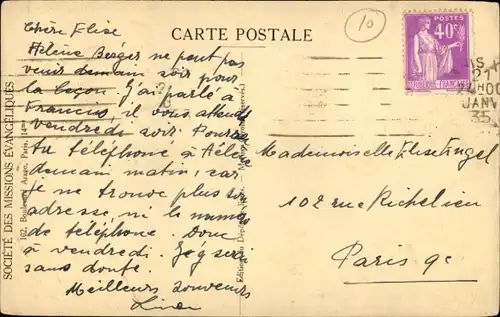 CARTE POSTALE
10
POSTES
40c
21
JANV
35
SOCIÉTÉ DES MISSIONS ÉVANGÉLIQUES
102, Boulevard Arago, Paris, 14me
Chère Elise
Hélène Berger ne peut pas
venir demain soir pour
la leçon. J'ai parlé à
Francis, il vous attend
vendredi soir. Pourrais
tu téléphoner à Hélène
demain matin, car
je ne trouve plus son
adresse, ni le numéro
de téléphone. Donc
à vendredi. J'y serai
sans doute.
Meilleurs souvenirs
Mademoiselle Elise Engel
102 rue Richelieu
Paris 9e